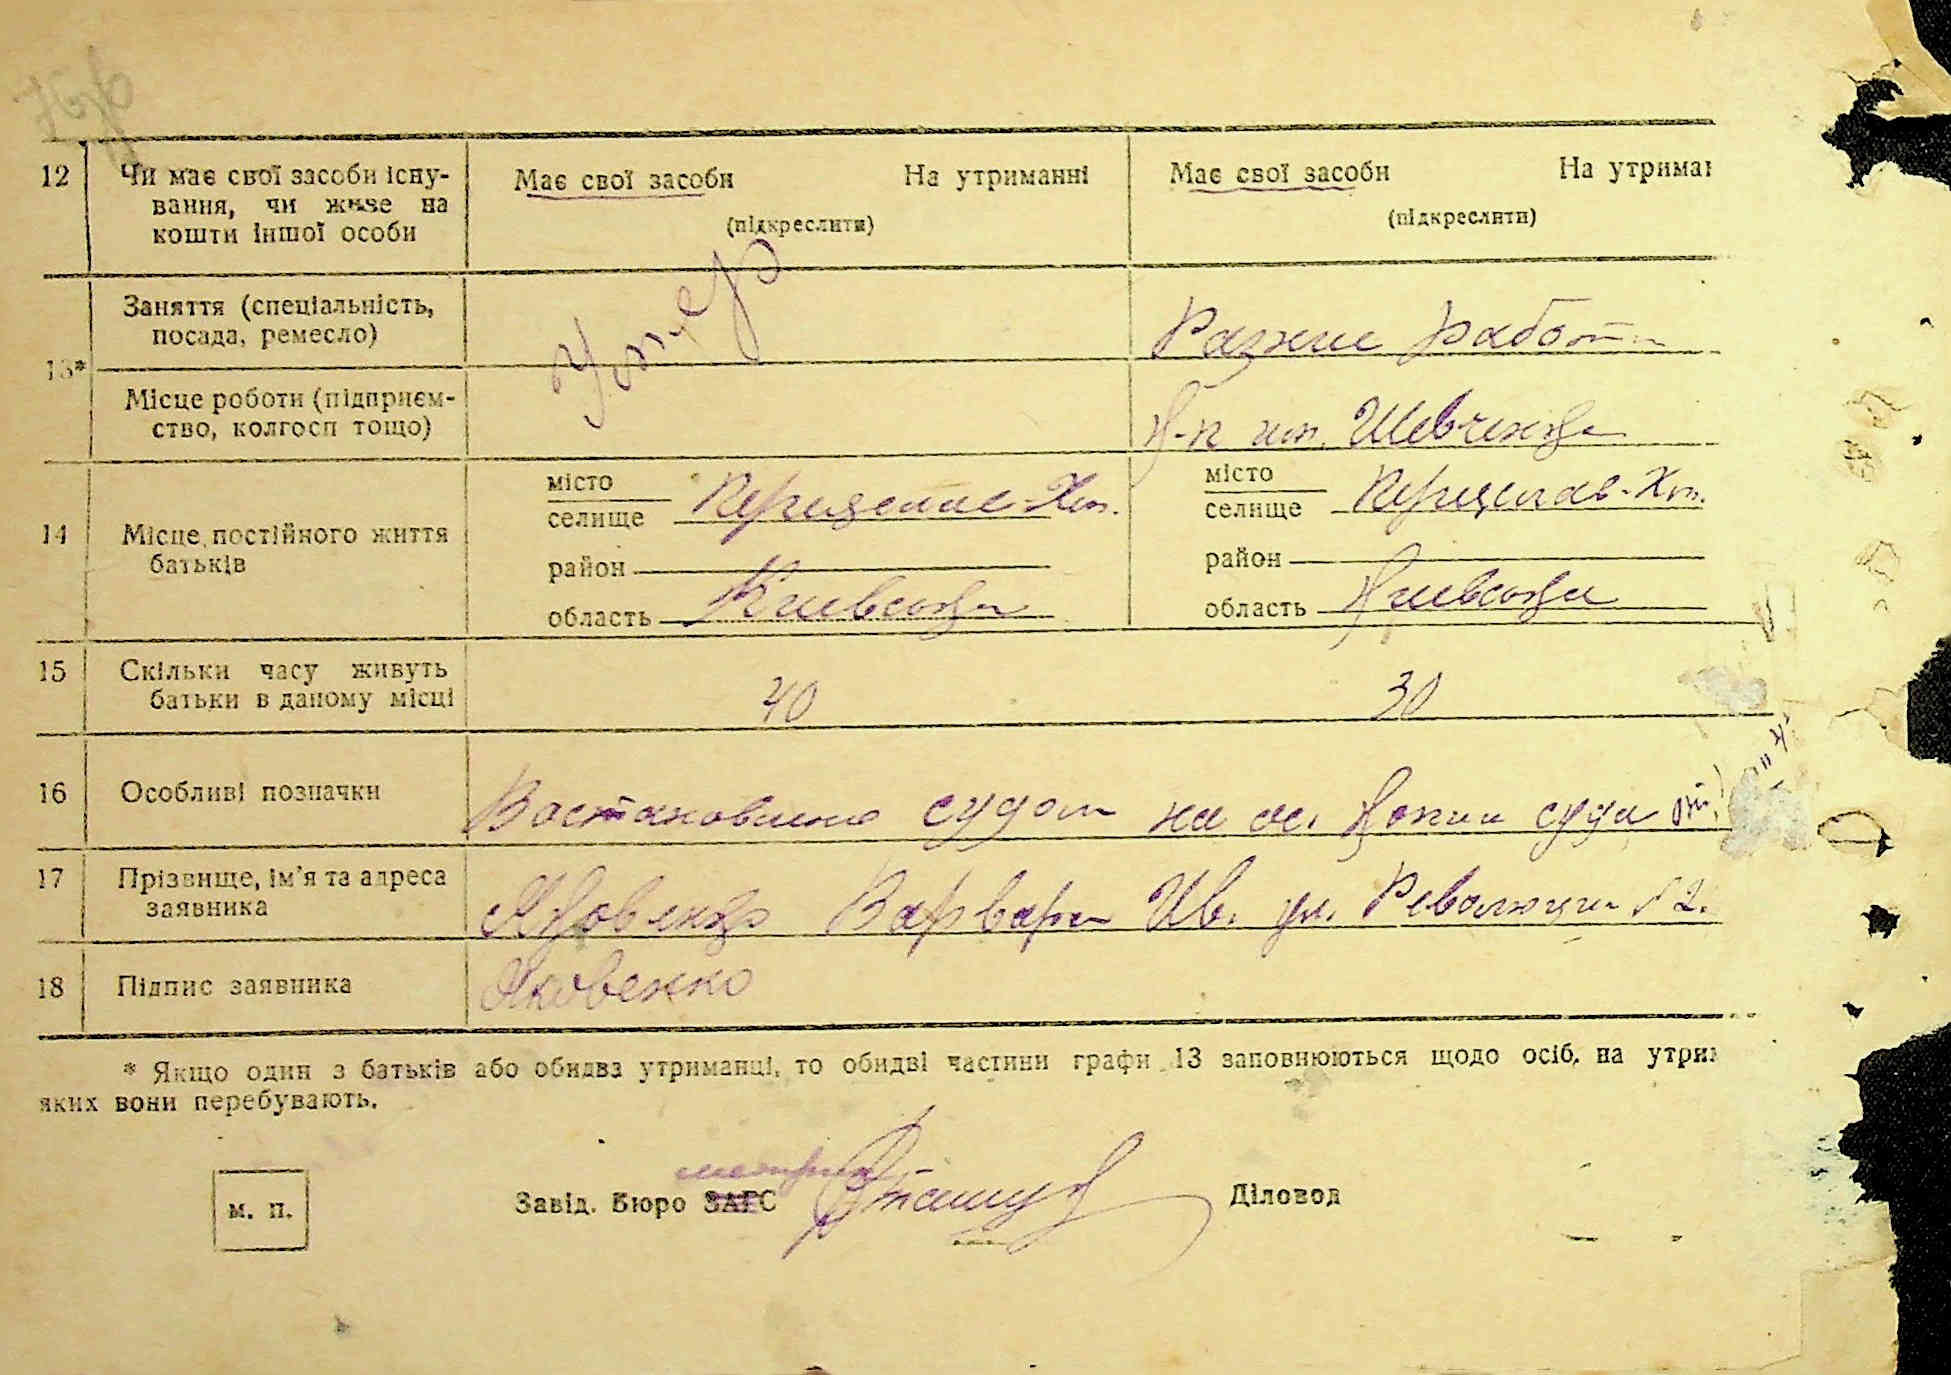 12 Чи має свої засоби існу- Має свої засоби На утриманні Має свої засоби На утриман
вання, чи живе на (підкреслити) (підкреслити)
кошти іншої особи
Заняття (спеціальність,
посада, ремесло) Умер Разние работи
13*
Місце роботи (підприєм-
ство, колгосп тощо) К-п им. Шевченка
14 Місце постійного життя
батьків
місто
селище Переяслав-Хм.
район
область Киевська
місто
селище Переяслав-Хм.
район
область Киевська
15 Скільки часу живуть
батьки в даному місці 40 30
16 Особливі позначки Востановлено судом на ос. Копии суда
17 Прізвище, ім'я та адреса
заявника Яковенко Варвара Ив. ул. Революции № 2.
18 Підпис заявника Яковенко
* Якщо один з батьків або обидва утриманці, то обидві частини графи 13 заповнюються щодо осіб, на утрим
яких вони перебувають.
м. п. Завід. Бюро ЗАГС Діловод